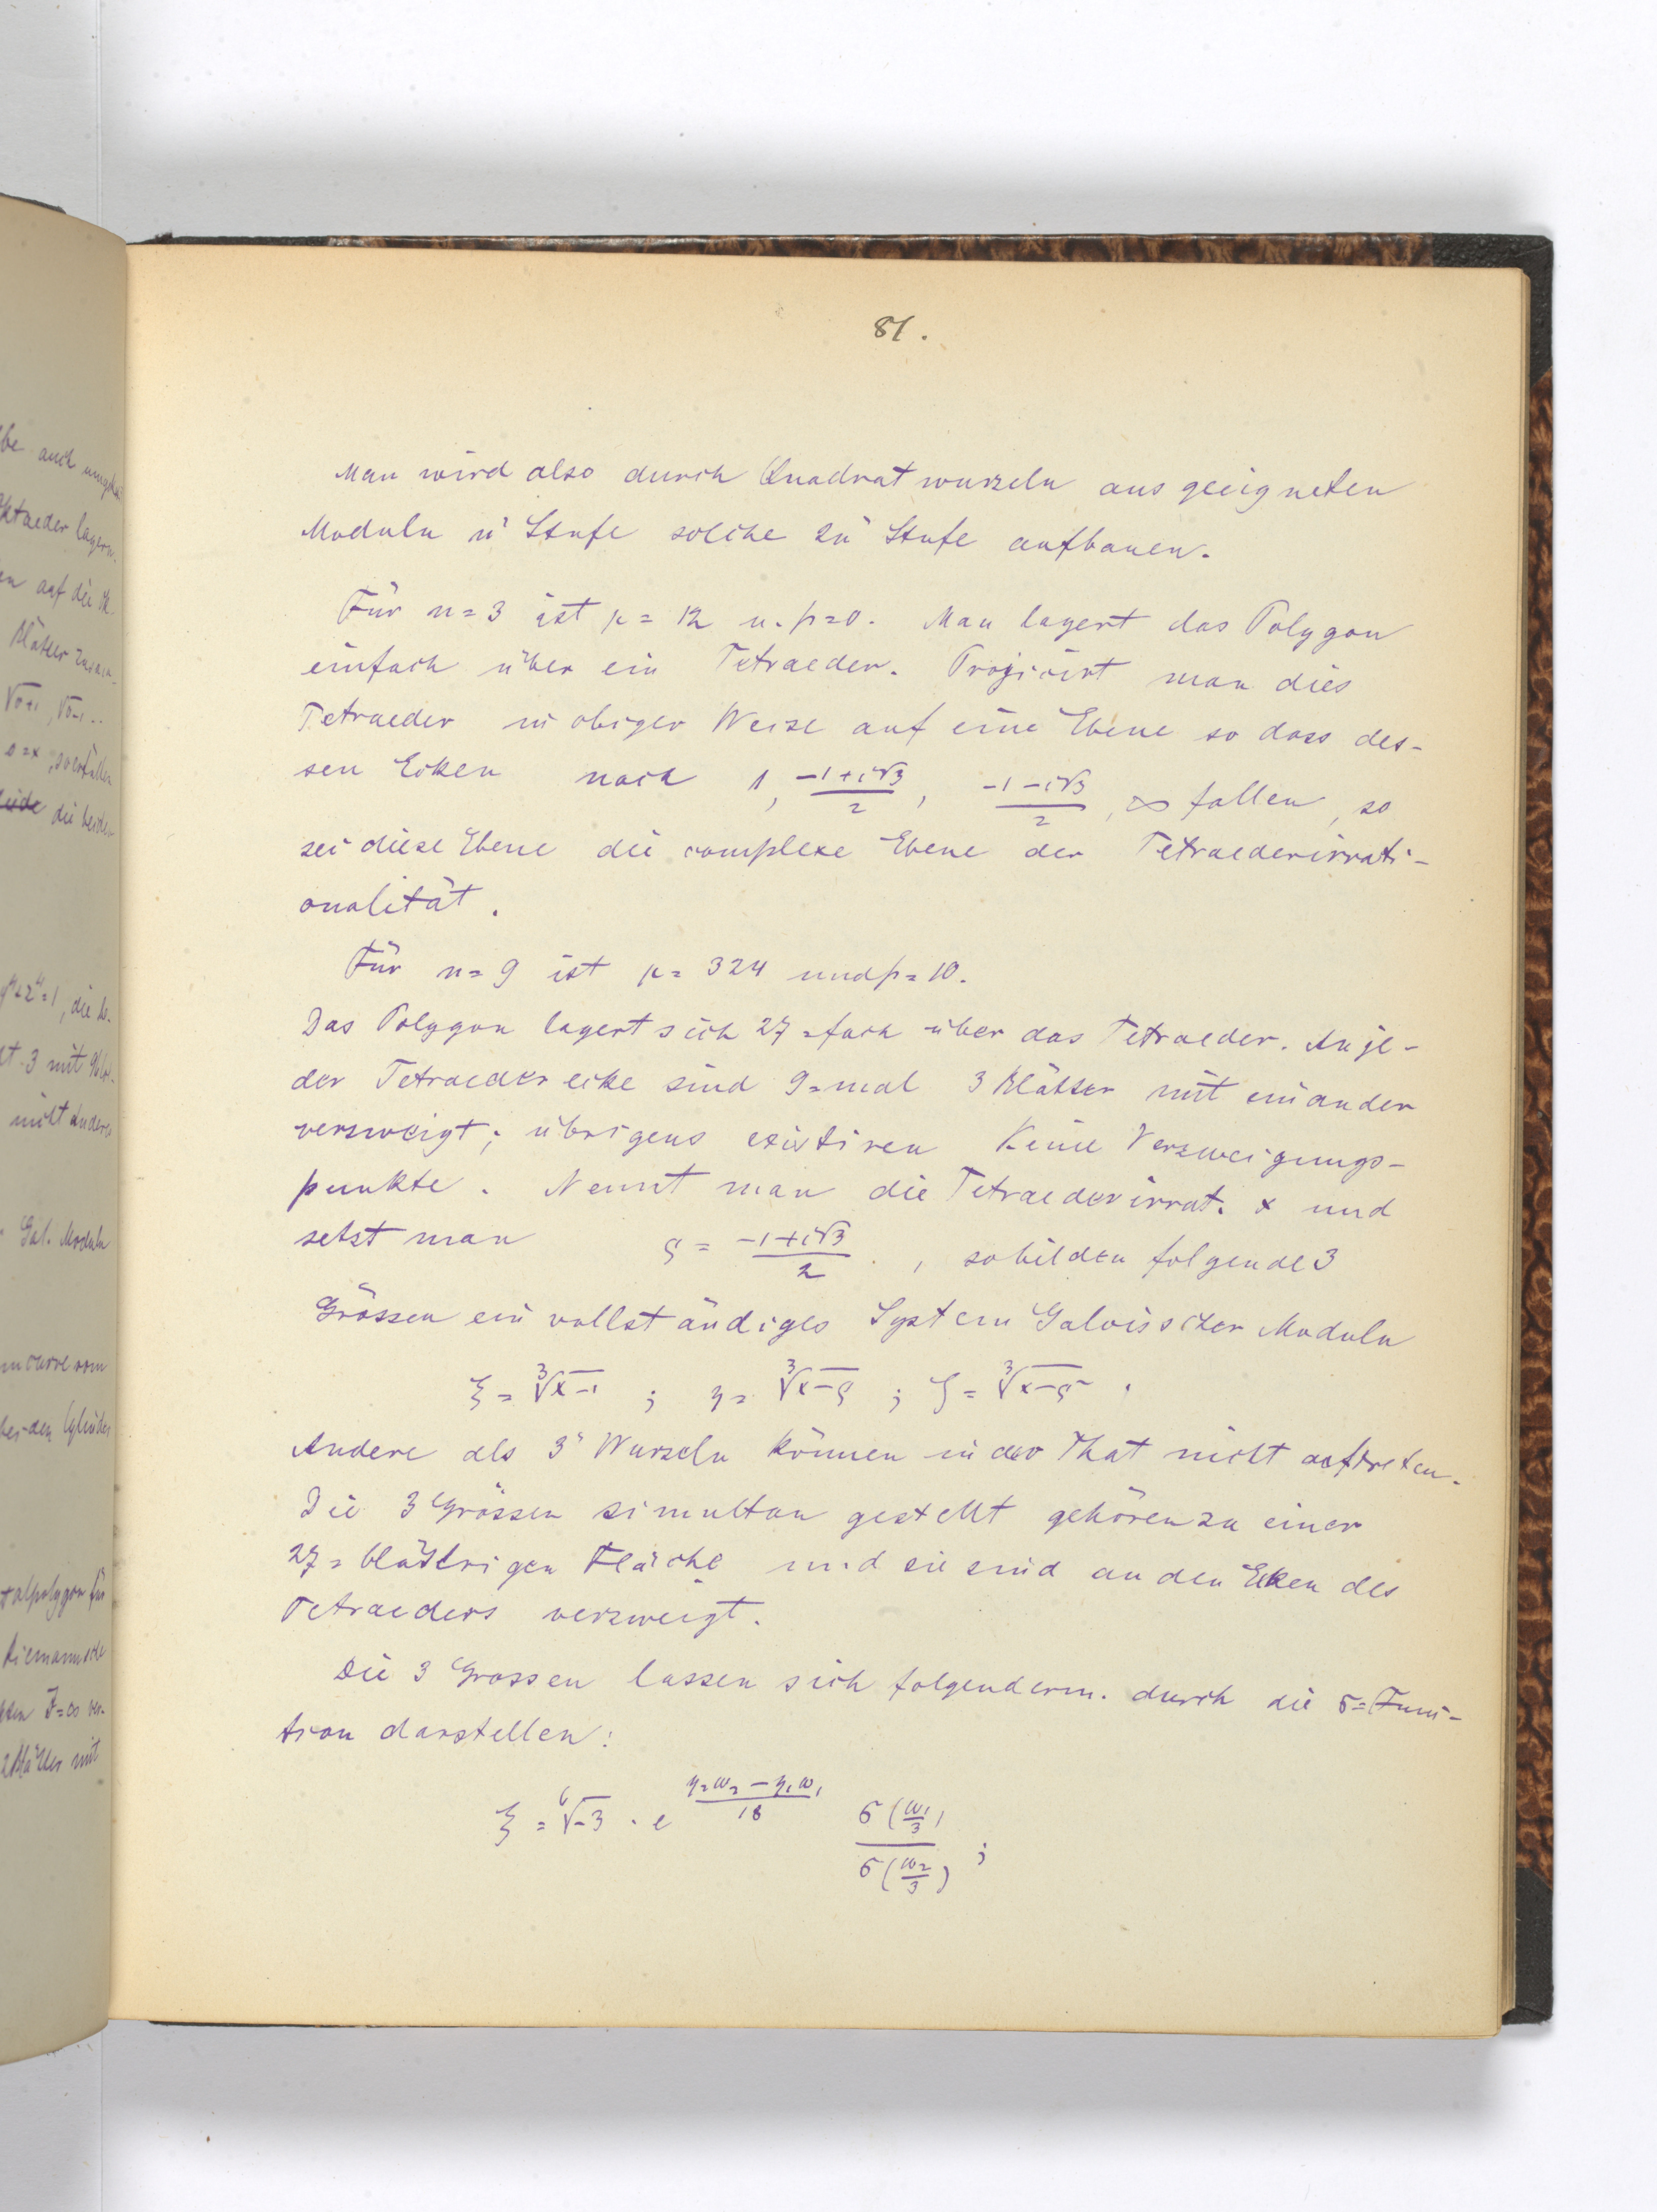 be auch
ktaeder lagern.
en auf die
Blätter
√σ+1, √σ-1 ..
die beiden
=1, die
nicht
Gal. Moduln
curve vom
den Cylinder
talpolygon für
Riemannsche
J=∞
Blätter mit
81.
Man wird also durch Quadratwurzeln aus geeigneten
Moduln nͬ Stufe solche 2nͬ Stufe aufbauen.
Für n=3 ist μ= 12 u. p=0. Man lagert das Polygon
einfach über ein Tetraeder. Projicirt man dies
Tetraeder in obiger Weise auf eine Ebene so dass des-
sen Ecken nach 1, (-1+i√3)/2, (-1-i√3)/2, ∞ fallen, so
sei diese Ebene die complexe Ebene der Tetraederirrati-
onalität.
Für n=9 ist μ= 324 und p=10.
Das Polygon lagert sich 27=fach über das Tetraeder. An je-
der Tetraederecke sind 9=mal 3 Blätter mit einander
verzweigt; übrigens existiren keine Verzweigungs-
punkte. Nennt man die Tetraederirrat. x und
setzt man ϱ = (-1+i√3)/2 , so bilden folgende 3
Grössen ein vollständiges System Galoisscher Moduln
ξ = ∛(x-1) ; η = ∛(x-ϱ) ; ζ = ∛(x-ϱ²) .
Andere als 3ͭ Wurzeln können in der That nicht auftreten.
Die 3 Grössen simultan gestellt gehören zu einer
27=blättrigen Fläche und sie sind an den Ecken des
Tetraeders verzweigt.
Die 3 Grossen lassen sich folgenderm. durch die σ=Func-
tion darstellen:
ξ = ⁶√-3 . e^((η₂ω₂ - η₁ω₁)/18) σ(ω₁/3) / σ(ω₂/3) ;